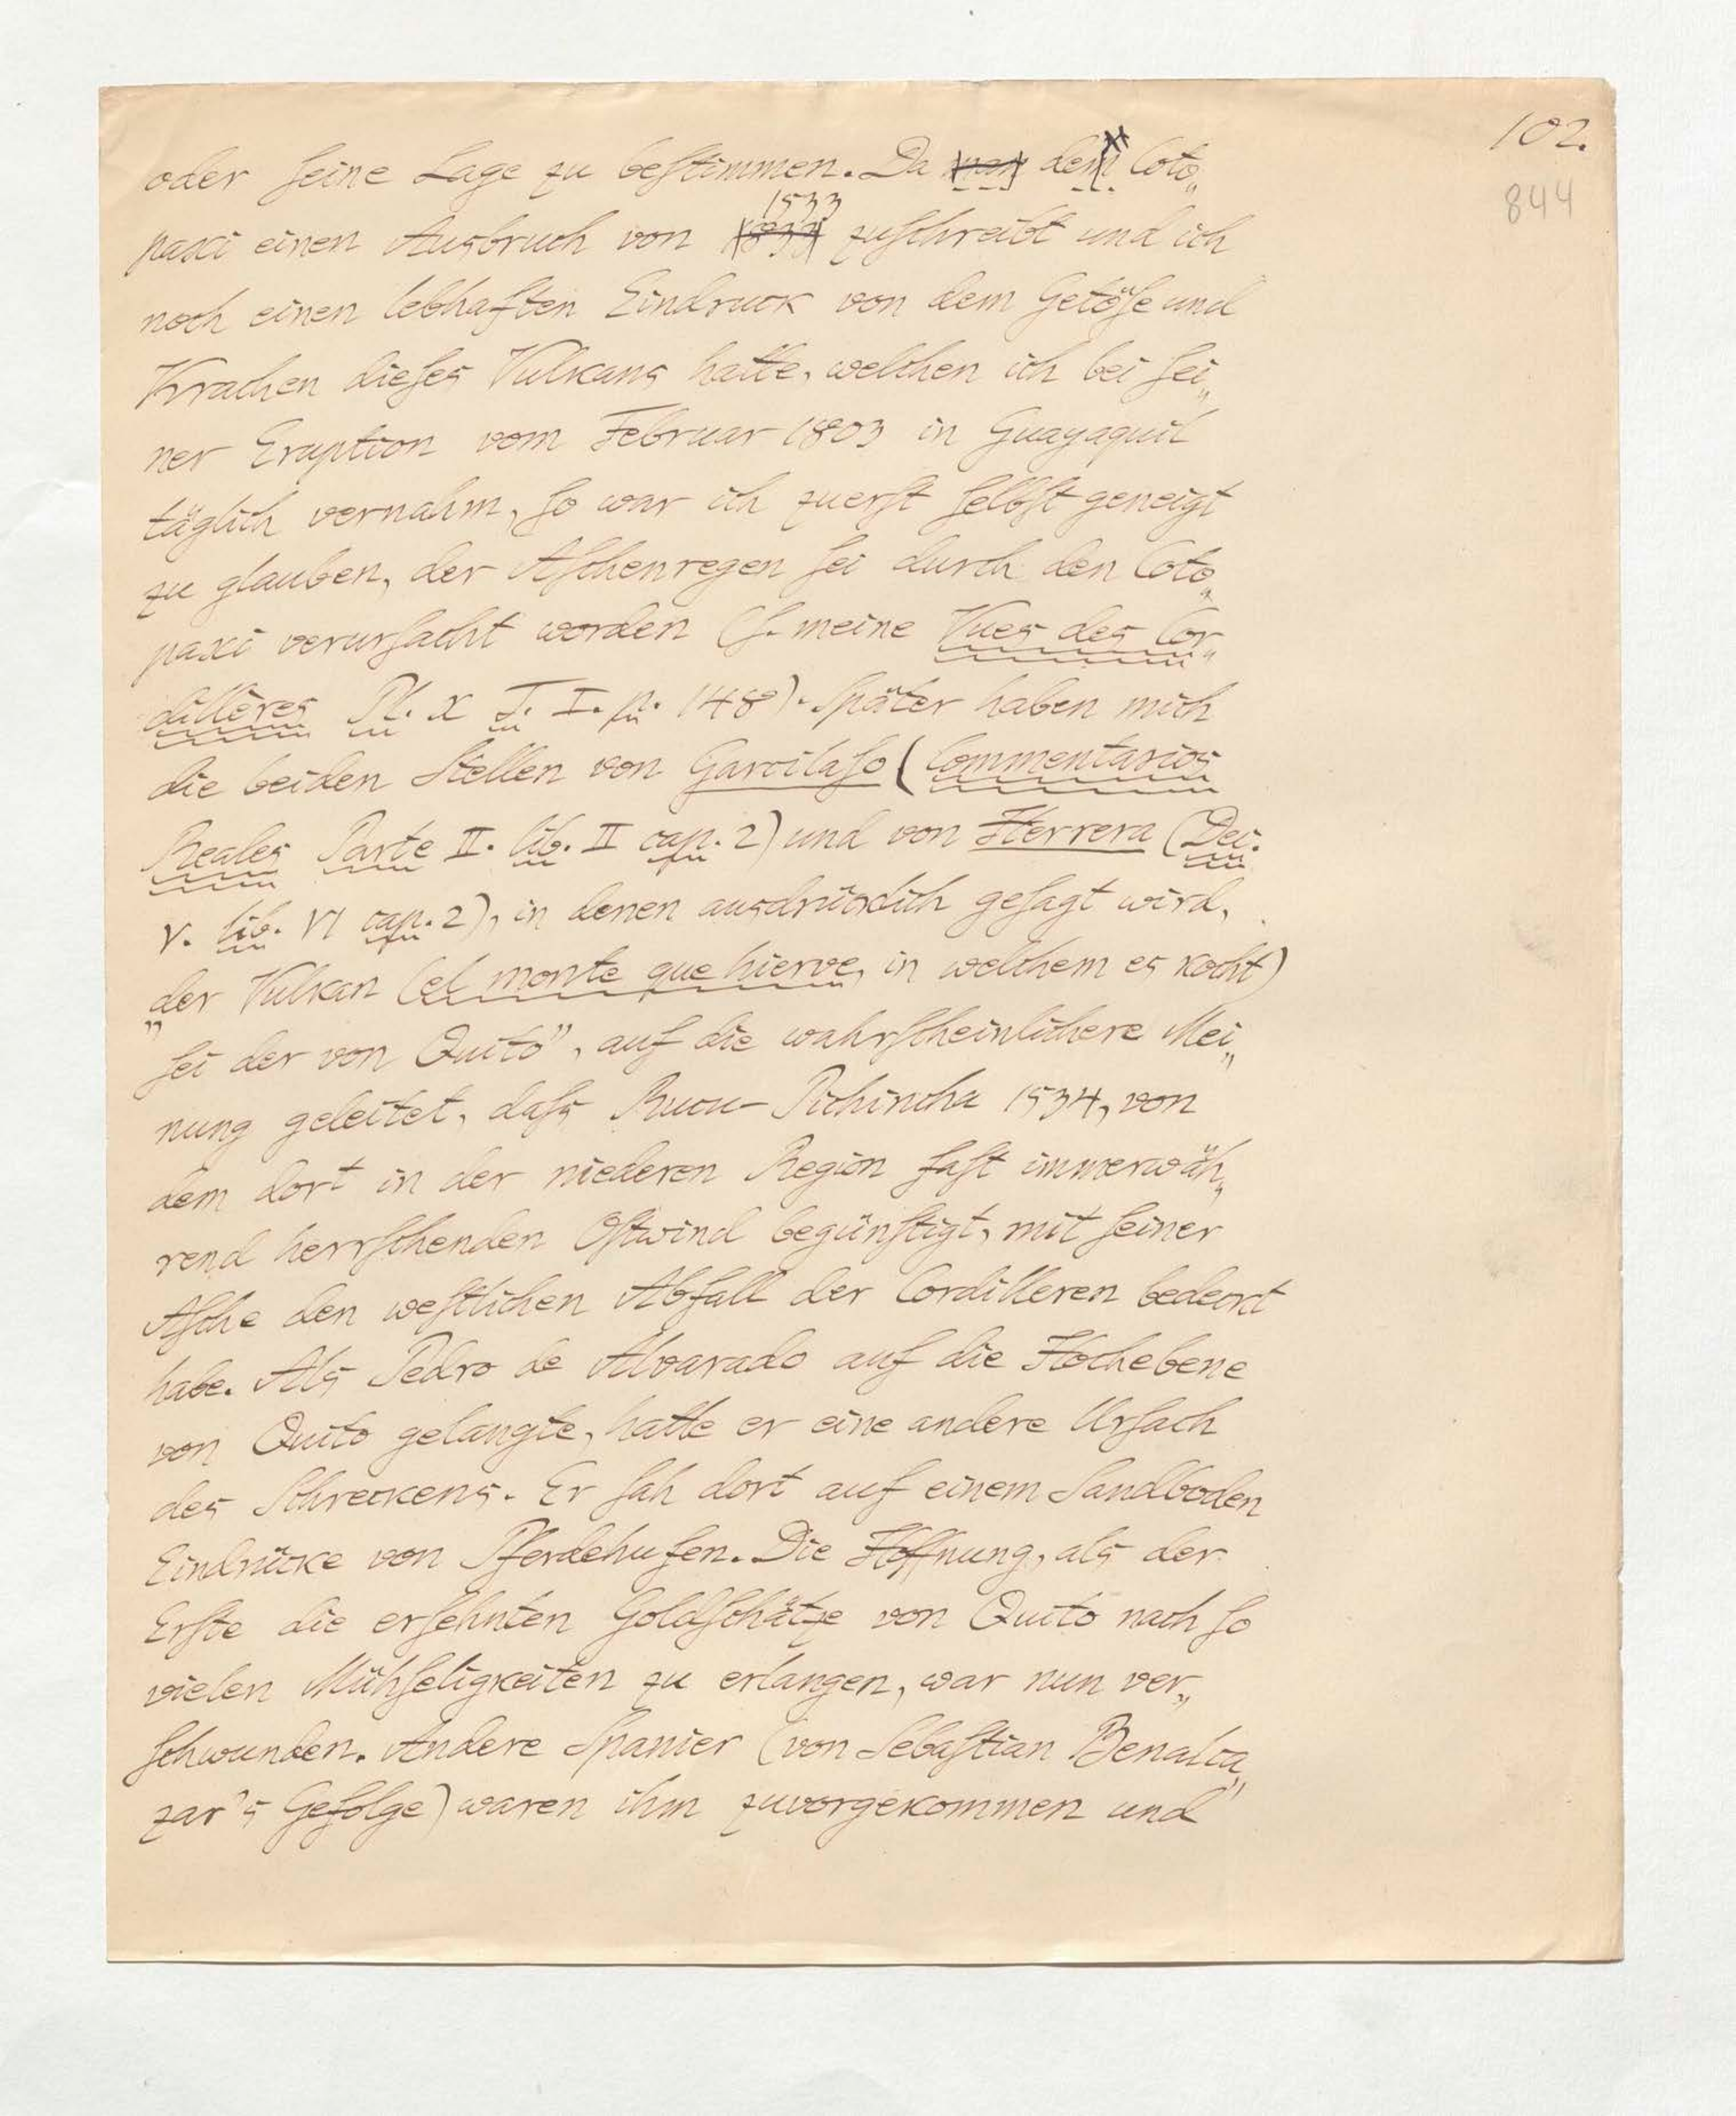 102.
844
oder ſeine Lage zu beſtimmen. Da man dem Coto„
paxi einen Ausbruch von 1533 zuſchreibt und ich
noch einen lebhaften Eindruck von dem Getöſe und
Krachen dieſes Vulkans hatte, welchen ich bei ſei„
ner Eruption vom Februar 1803 in Guayaquil
täglich vernahm, ſo war ich zuerſt ſelbſt geneigt
zu glauben, der Aſchenregen ſei durch den Coto„
paxi verurſacht worden (ſ. meine Vues des Cor„
dillères Pl. X T. I. p. 148). Später haben mich
die beiden Stellen von Garcilaſo (Commentarios
Reales Parte II. lib. II cap. 2) und von Herrera (Dec.
V. lib. VI cap. 2), in denen ausdrücklich geſagt wird,
„der Vulkan (el monte que hierve, in welchem es kocht)
ſei der von Quito", auf die wahrſcheinlichere Mei„
nung geleitet, daſs Rucu-Pichincha 1534, von
dem dort in der niederen Region faſt immerwäh„
rend herrſchenden Oſtwind begünſtigt, mit ſeiner
Aſche den weſtlichen Abfall der Cordilleren bedeckt
habe. Als Pedro de Alvarado auf die Hochebene
von Quito gelangte, hatte er eine andere Urſach
des Schreckens. Er ſah dort auf einem Sandboden
Eindrücke von Pferdehufen. Die Hoffnung, als der
Erſte die erſehnten Goldſchätze von Quito nach ſo
vielen Mühſeligkeiten zu erlangen, war nun ver„
ſchwunden. Andere Spanier (von Sebaſtian Benalca„
zar's Gefolge) waren ihm zuvorgekommen und